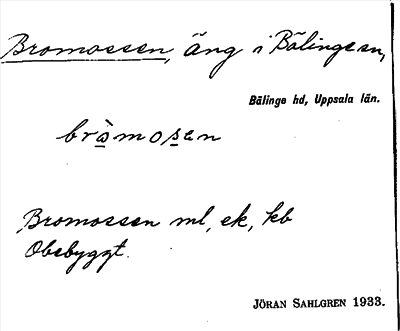 Bromossen, äng i Bälinge sn,
Bälinge hd, Uppsala län.
bròmosen
Bromossen ml, ek, kb
Obebyggt.
JÖRAN SAHLGREN 1933.